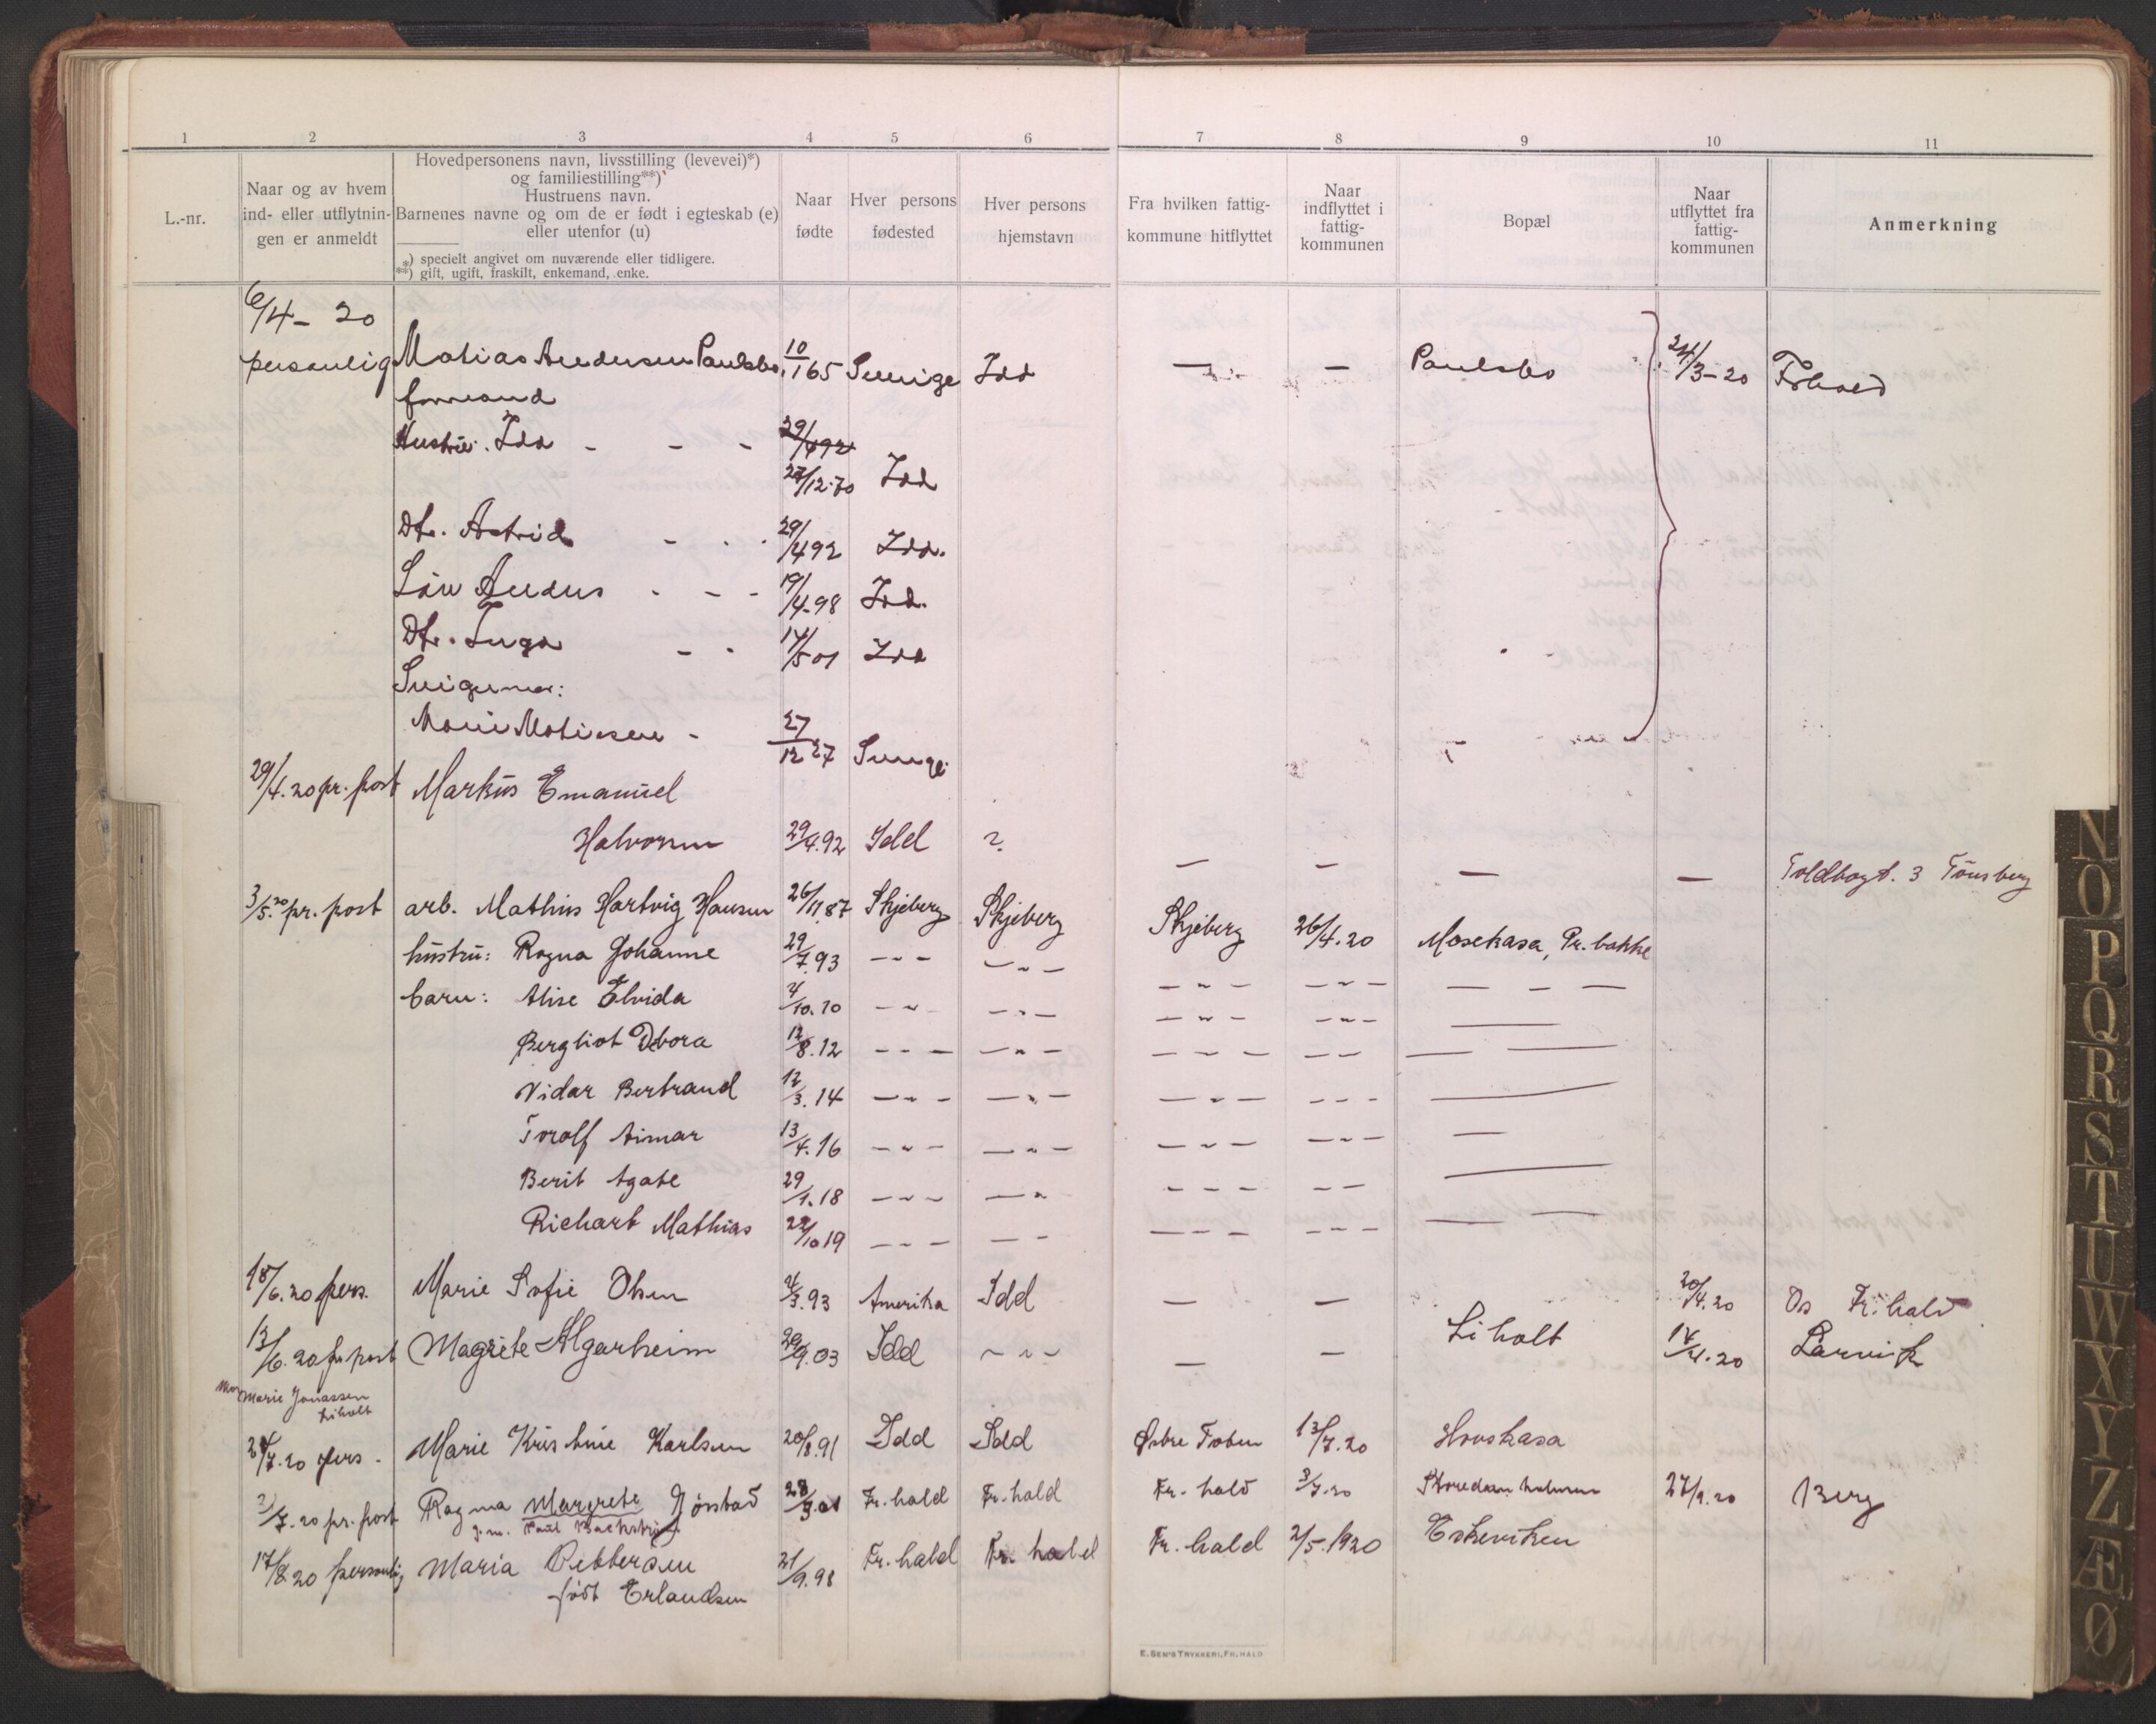 1 2 3 4 5 6 7 8 9 10 11
L.-nr.
Naar og av hvem
ind- eller utflytnin-
gen er anmeldt
Hovedpersonens navn, livsstilling (levevei)*)
og familiestilling**)
Hustruens navn.
Barnenes navne og om de er født i egteskab (e)
eller utenfor (u)
*) specielt angivet om nuværende eller tidligere.
**) gift, ugift, fraskilt, enkemand, enke.
Naar
fødte
Hver persons
fødested
Hver persons
hjemstavn
Fra hvilken fattig-
kommune hitflyttet
Naar
indflyttet i
fattig-
kommunen
Bopæl
Naar
utflyttet fra
fattig-
kommunen
Anmerkning
6/4 - 20
personlig Matias Andersen Paulsbo, 10/1 65 Sverige Idd — — Paulsbo 24/3-20 Frhald
formand
Hustru. Ida - - - 29/4 92
27/12-70 Idd
Dtr. Astrid - - - 29/4 92 Idd.
Sön Anders - - - 19/4-98 Idd.
Dtr. Inga - - 14/5 01 Idd
Svigermor:
Marie Matiesen - 27/12 27 Sverige
29/4.20 pr. post Markus Emanuel
Halvorsen 29/4.92 Idd ? — — — — Toldbogt. 3 Tönsberg
3/5.20 pr. post arb. Mathius Hartvig Hansen 26/11 87 Skjeberg Skjeberg Skjeberg 26/4.20 Mosekasa, Pr. bakke
hustru: Ragna Johanne 29/7.93 - " - - " - - " - - " - — - —
barn: Alise Elvida 4/10.10 - " - - " - - " - - " - —
Bergliot Debora 12/8.12 - " - - " - - " - - - — —
Vidar Bertrand 12/3.14 - " - - " - - " - - - - —
Torolf Aimar 13/4.16 - " - - " - - " - - " - —
Berit Agate 29/1.18 - " - - " - - - - - —
Richart Mathias 22/10 19 - - - - - - - - - - - — —
18/6.20 pers. Marie Sofie Olsen 4/3.93 Amerika Idd — — 20/4.20 Os Fr.hald
13/6.20 pr post Magrete Algarheim 29/9.03 Idd - " - — — Liholt 14/4.20 Larvik
Mor Marie Jonassen
Liholt
24/7.20 pers. Marie Kristine Karlsen 20/8.91 Idd Idd Østre Toten 13/7.20 Hovskasa
2/7.20 pr. post Ragna Margrete Jörstad 28/3.01 Fr.hald Fr.hald Fr.hald 3/7.20 27/9.20 Berg
g.m. Paul Backström
17/8.20 personlig Maria Pettersen 21/9.98 Fr.hald Fr.hald Fr.hald 2/5.1920 Eskeviken
födt Erlandsen
E. SEM'S TRYKKERI, FR.HALD
N
O
P
Q
R
S
T
U
W
X
Y
Z
Æ
Ø